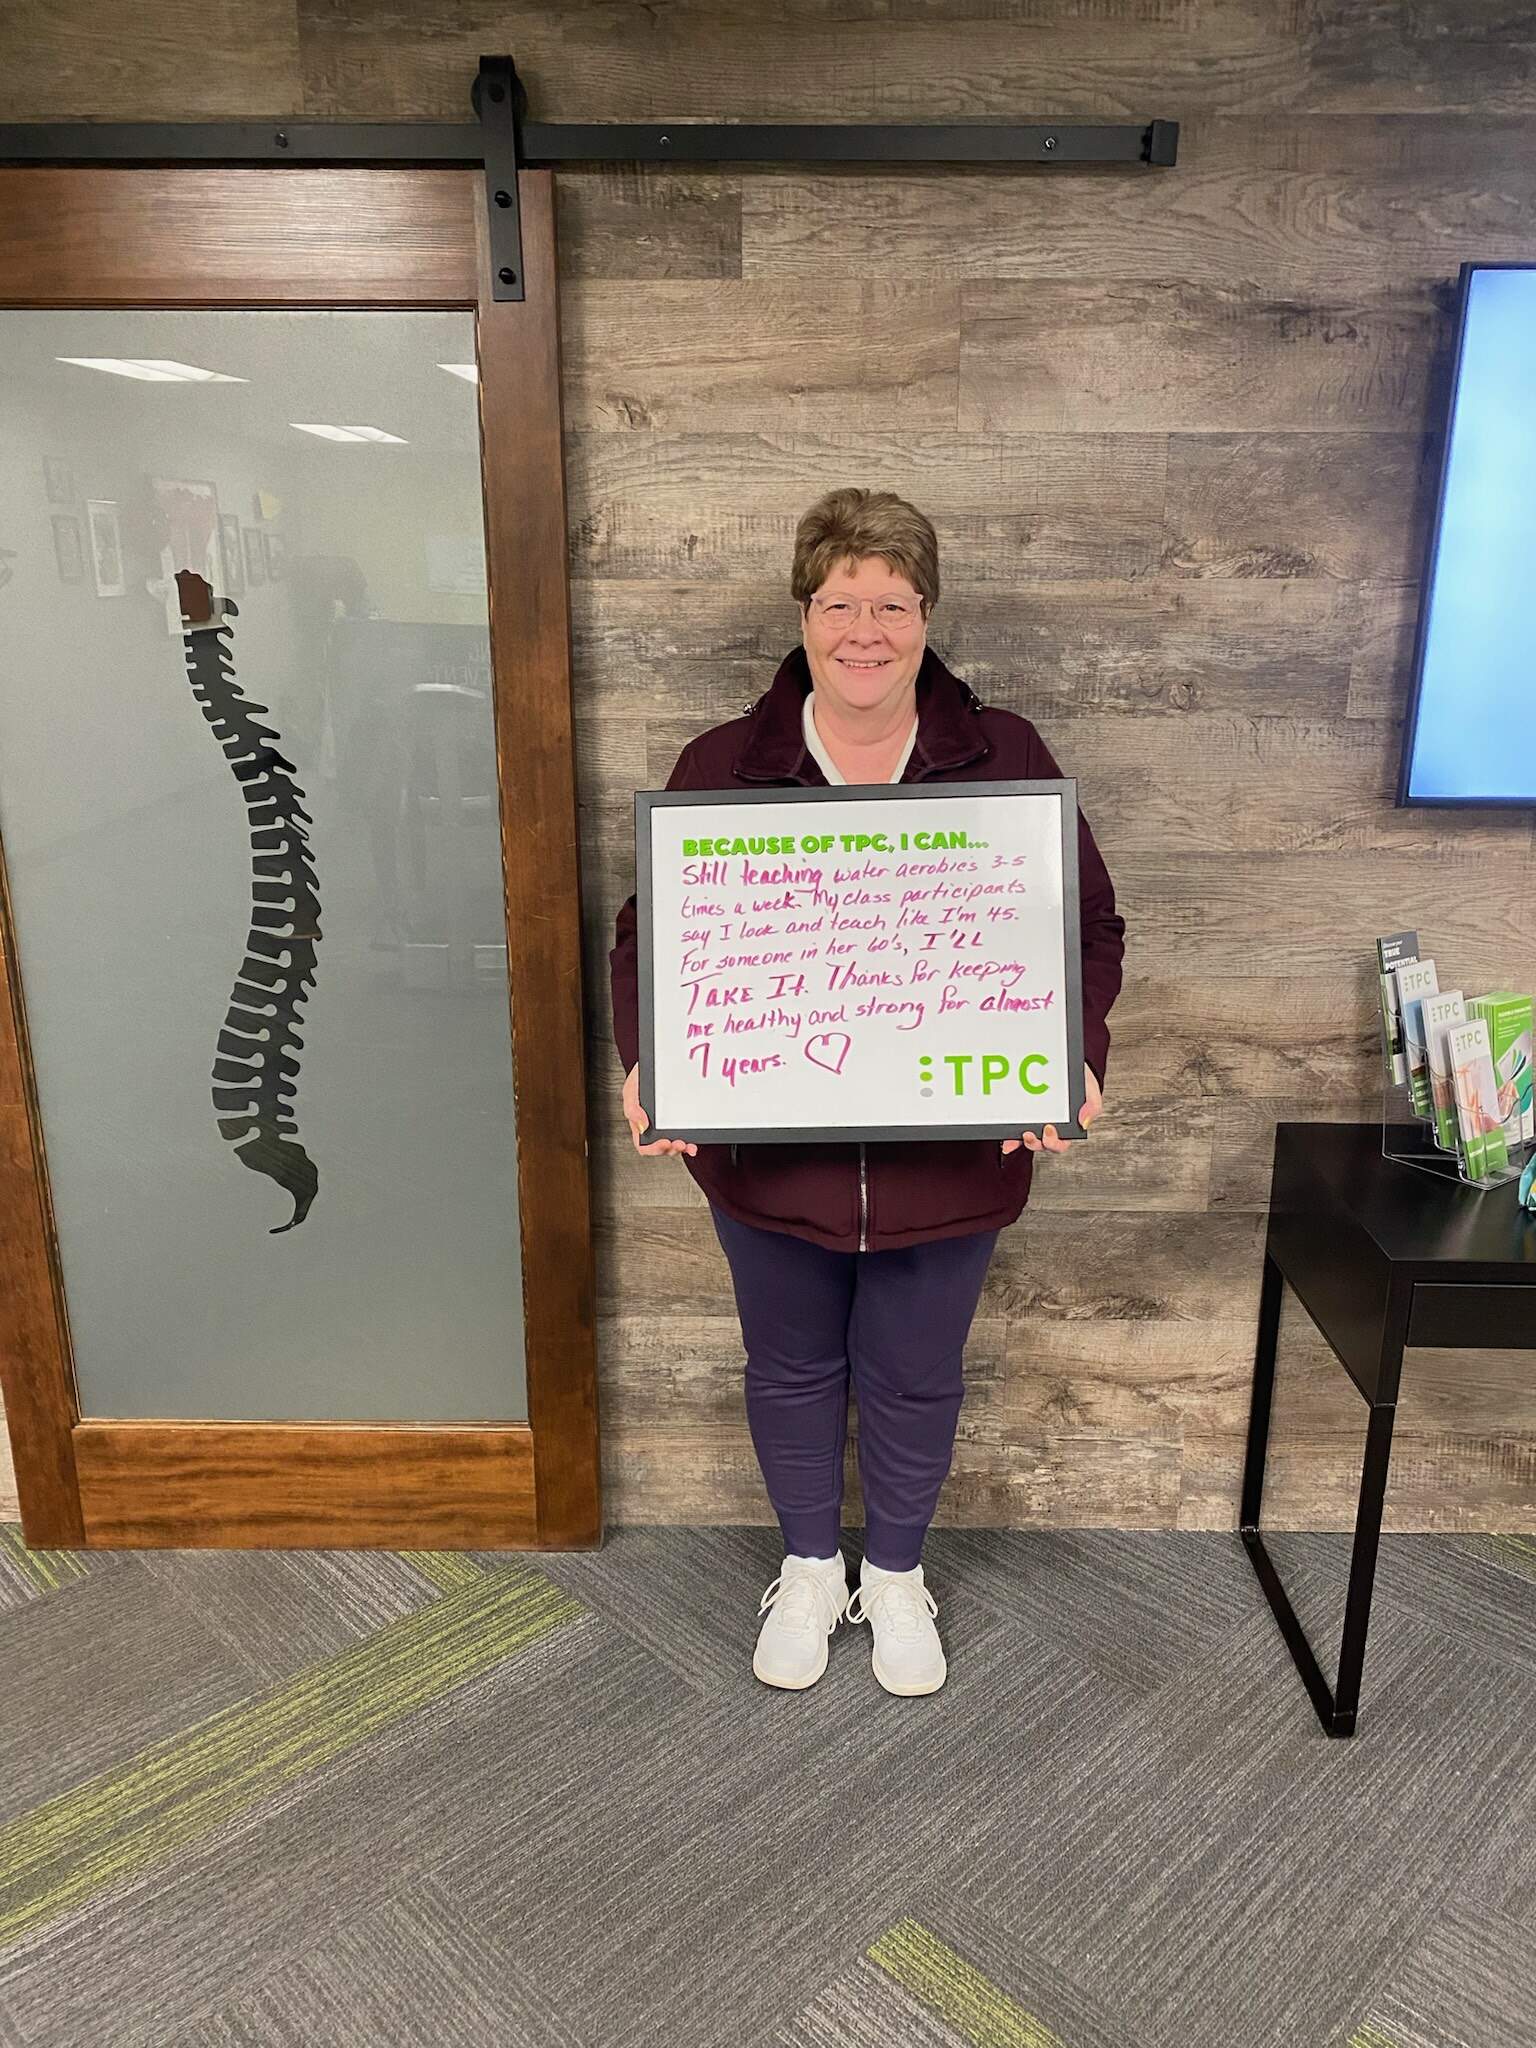 BECAUSE OF TPC, I CAN...
Still teaching water aerobics 3-5
times a week. My class participants
say I look and teach like I'm 45.
For someone in her 60's, I'LL
TAKE It. Thanks for keeping
me healthy and strong for almost
7 years.
TPC
TRUE
POTENTIAL
TPC
TPC
TPC